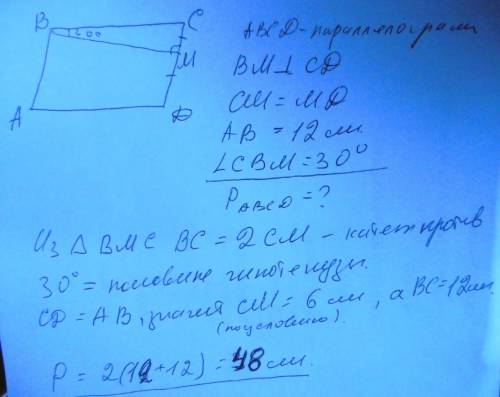 B C
300
M
A D
ABCD - параллелограмм
BM ⊥ CD
CM = MD
AB = 12 см.
∠CBM = 30°
P ABCD = ?
Из △ BMC BC = 2 CM - катет против
30° = половине гипотенузы.
CD = AB, значит CM = 6 см, а BC = 12 см.
(по условию).
P = 2(12 + 12) = 48 см.